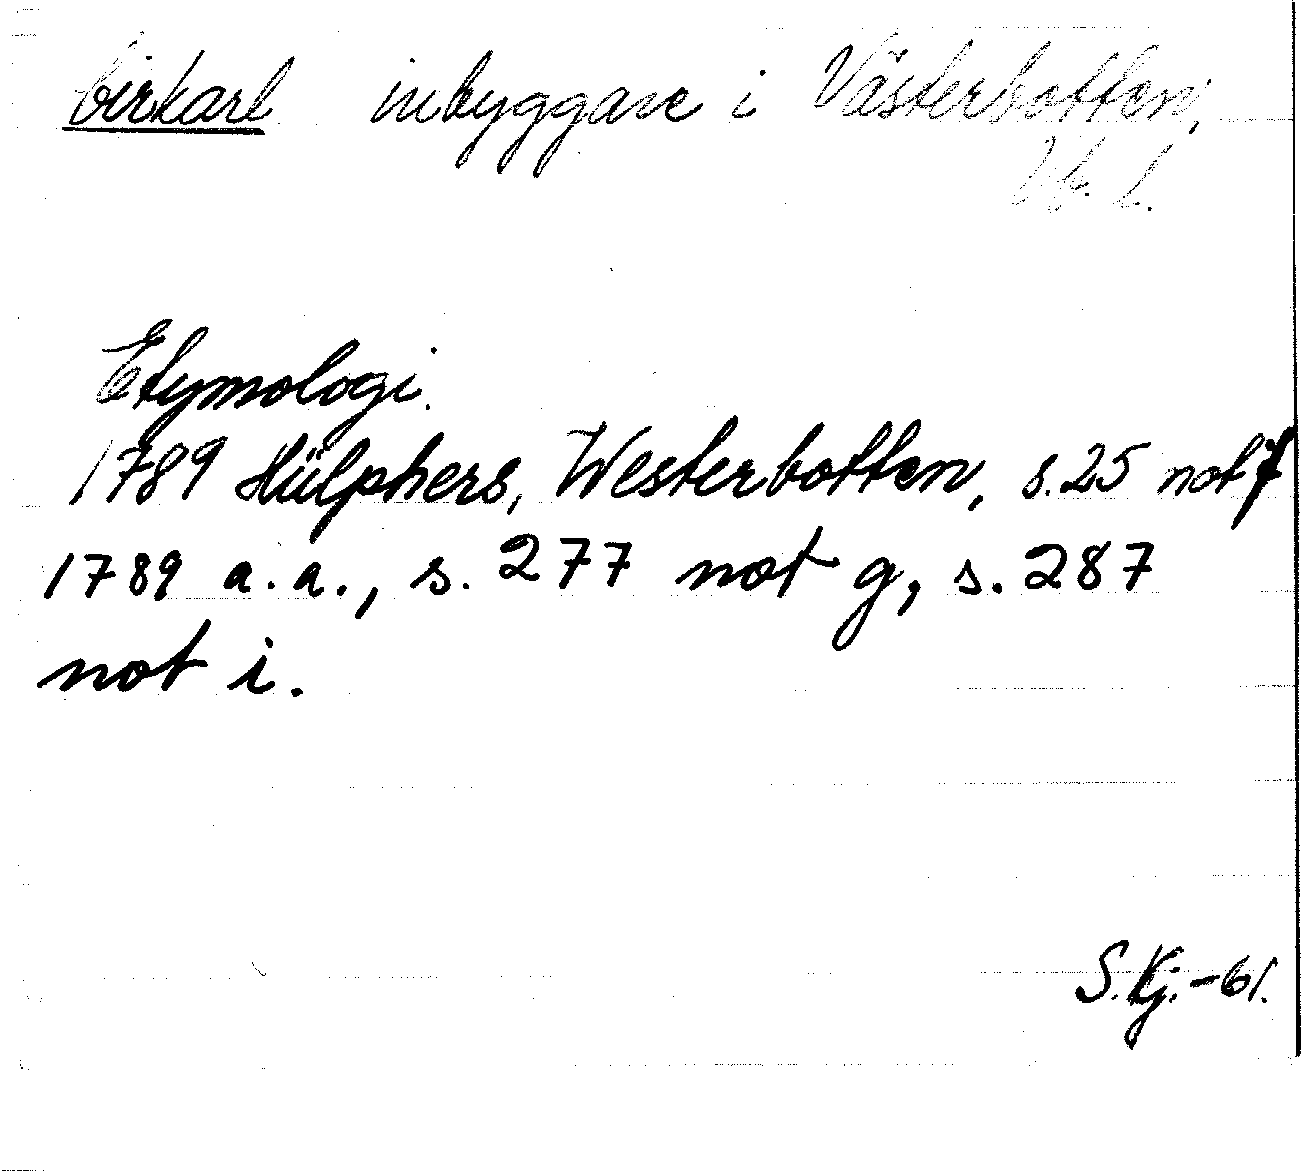 birkarl inbyggare i Västerbotten,
Vb. l.
Etymologi.
1789 Hülphers, Westerbotten, s. 25 not f
1789 a.a., s. 277 not g, s. 287
not i.
S. Kj. -61.